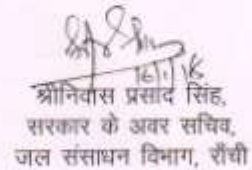 16/1/18
श्रीनिवास प्रसाद सिंह,
सरकार के अवर सचिव,
जल संसाधन विभाग, राँची